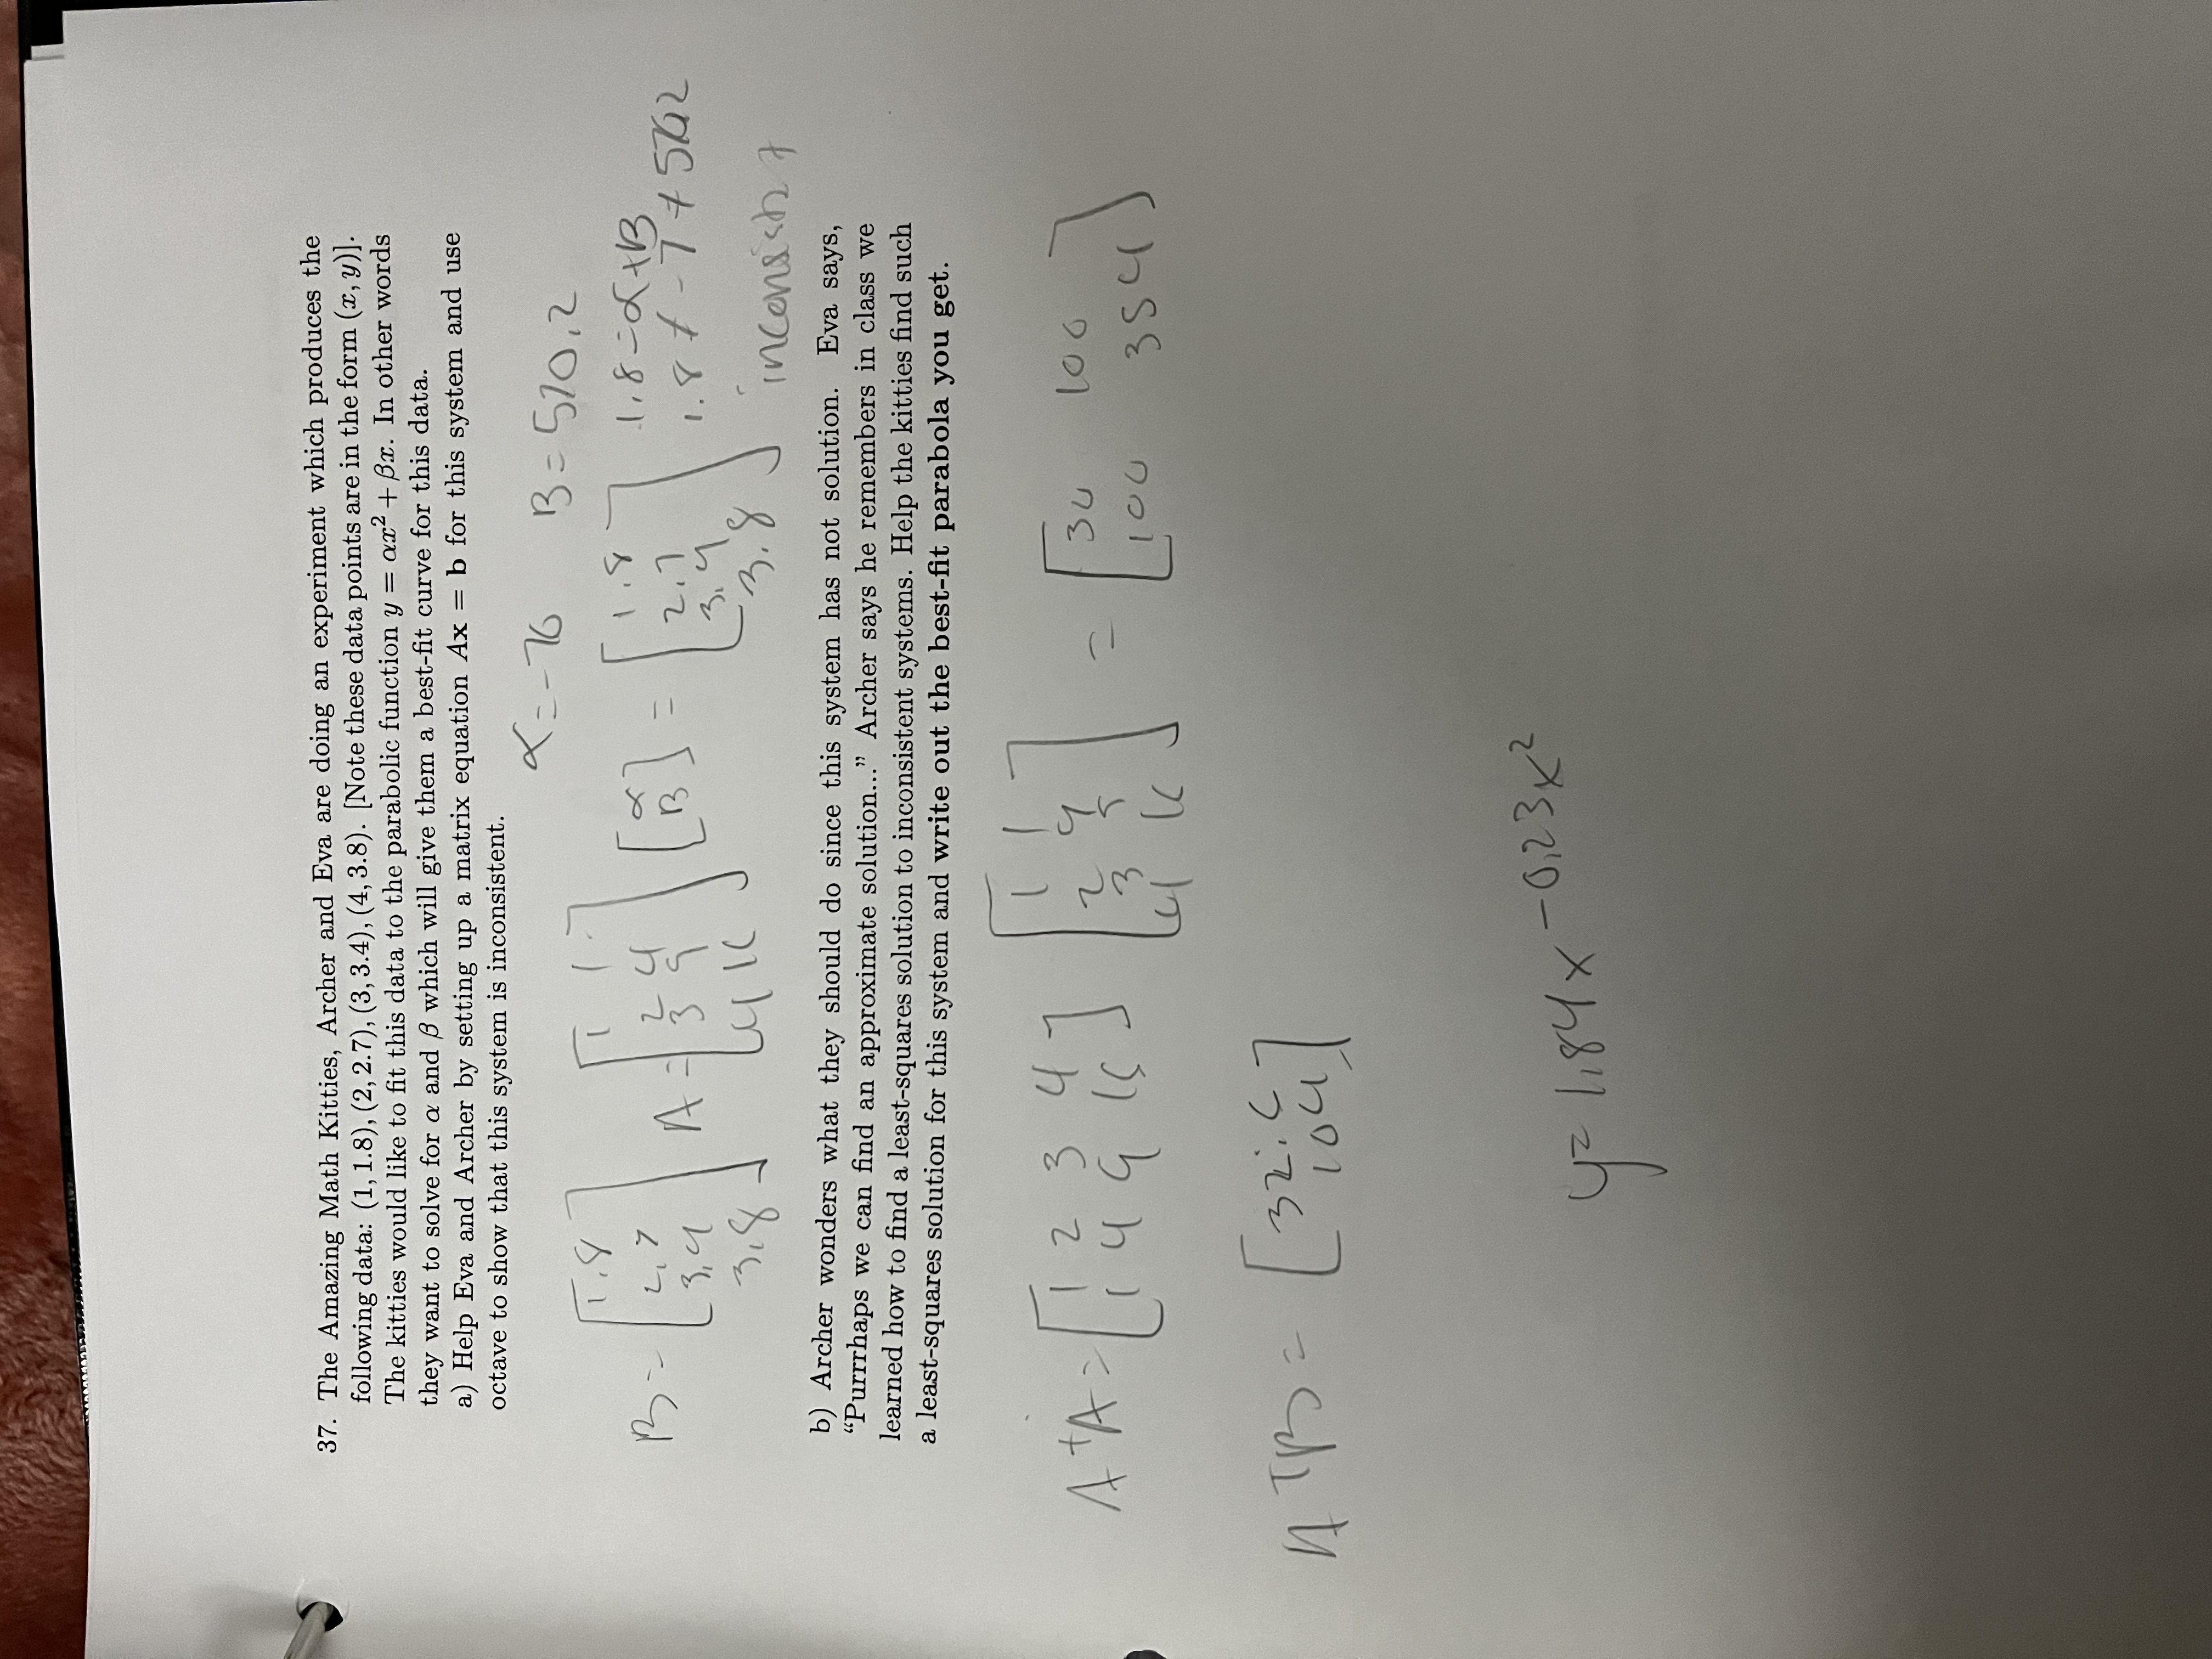 37. The Amazing Math Kitties, Archer and Eva are doing an experiment which produces the
following data: (1, 1.8), (2, 2.7), (3, 3.4), (4, 3.8). [Note these data points are in the form (x, y)].
The kitties would like to fit this data to the parabolic function y = αx² + βx. In other words
they want to solve for α and β which will give them a best-fit curve for this data.
a) Help Eva and Archer by setting up a matrix equation Ax = b for this system and use
octave to show that this system is inconsistent.
α = -76 B = 570.2
B = [1.8 2.7 3.4 3.8] A = [1 1 2 4 3 9 4 16] [α B] = [1.8 2.7 3.4 3.8]
1.8 = α + B
1.8 ≠ -7 + 5702
b) Archer wonders what they should do since this system has not solution. Eva says,
“Purrrhaps we can find an approximate solution...” Archer says he remembers in class we
learned how to find a least-squares solution to inconsistent systems. Help the kitties find such
a least-squares solution for this system and write out the best-fit parabola you get.
A^T A = [1 2 3 4 1 4 9 16] [1 1 2 4 3 9 4 16] = [30 100 100 354]
A^T B = [32.6 104]
y = 1.84x - 0.23x²